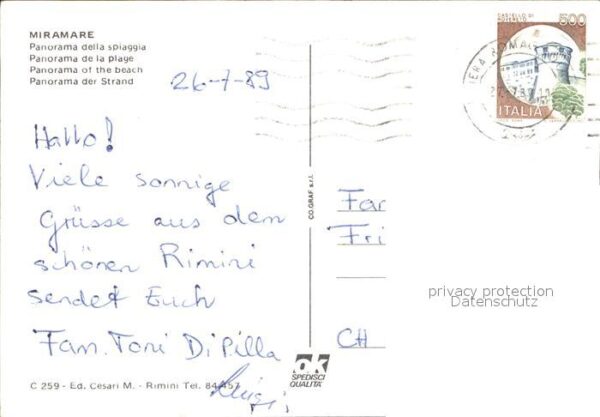 MIRAMARE
Panorama della spiaggia
Panorama de la plage
Panorama of the beach
Panorama der Strand
26-7-89
Hallo!
Viele sonnige
Grüsse aus dem
schönen Rimini
sendet Euch
Fam. Toni Di Pilla
Luigi
C 259 - Ed. Cesari M. - Rimini Tel. 84457
CO.GRAF s.r.l.
OK
SPEDISCI
QUALITA'
CASTELLO DI
ROVERETO
500
ITALIA
Fam
Fri
CH
privacy protection
Datenschutz